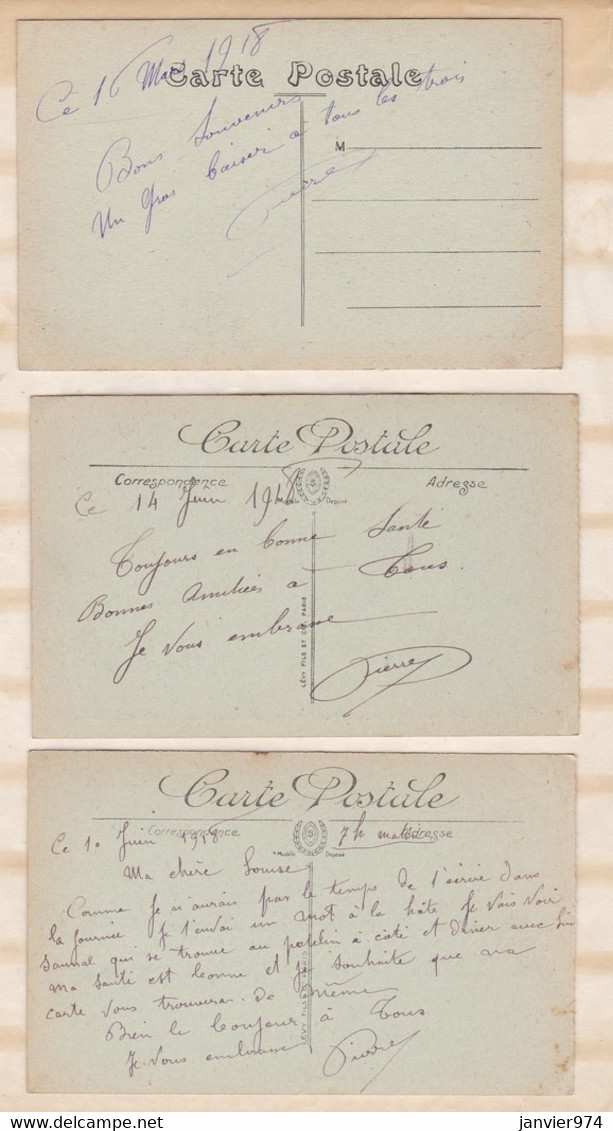 Ce 16 Mars 1918
Carte Postale
Bons Souvenirs
Un Gros baiser a tous les trois
Pierre
M
Carte Postale
Correspondance
Adresse
Modèle Déposé
Ce 14 Juin 1918
Toujours en bonne Santé
Bonnes Amitiées a Tous.
Je Vous embrasse
Pierre
LÉVY FILS ET CIE, PARIS
Carte Postale
Correspondance
Adresse
Modèle Déposé
Ce 10 Juin 1918 7h matin
Ma chère Louise
Comme Je n'aurais pas le temps de t'écrire dans
la journée Je t'envoi un mot à la hâte Je Vais Voir
qui se trouve au patelin à côté et diner avec lui
ma Santé est bonne et Je Souhaite que ma
carte Vous trouvera de même
Bien le bonjour à Tous
Je Vous embrasse Pierre
LÉVY FILS PARIS
janvier974
delcampe.net